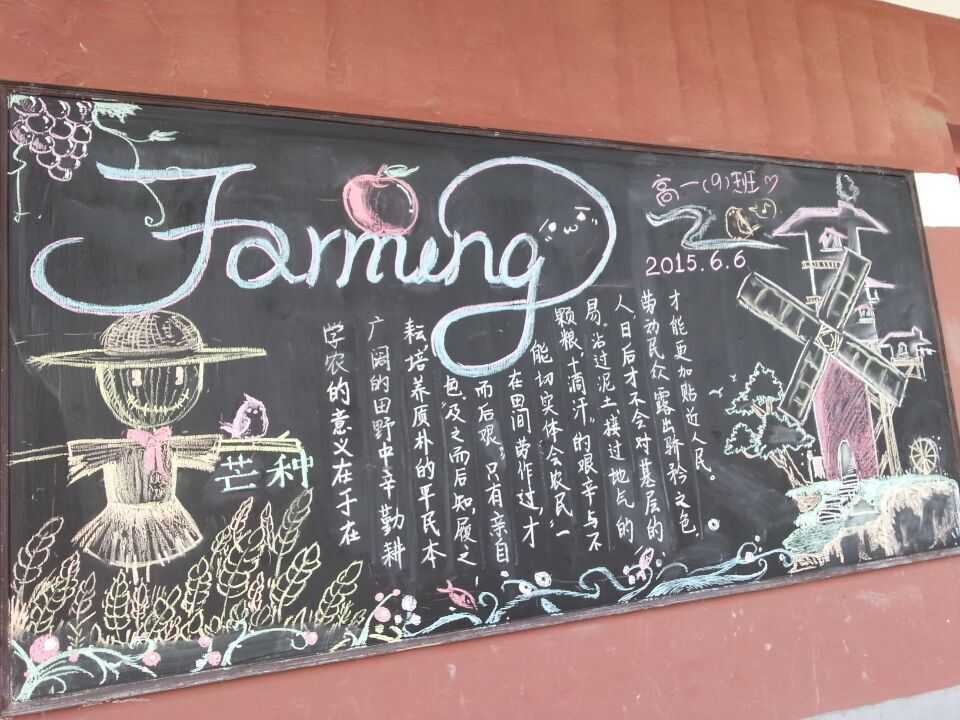 Farming
高一(9)班♡
2015.6.6
芒种
学农的意义在于在
广阔的田野中辛勤耕
耘培养质朴的平民本
色。及之而后知,履之
而后艰。只有亲自
在田间劳作过,才
能切实体会农民“一
颗粮,十滴汗”的艰辛与不
易。沾过泥土、接过地气的
人日后才不会对基层的
劳动民众露出骄矜之色,
才能更加贴近人民。